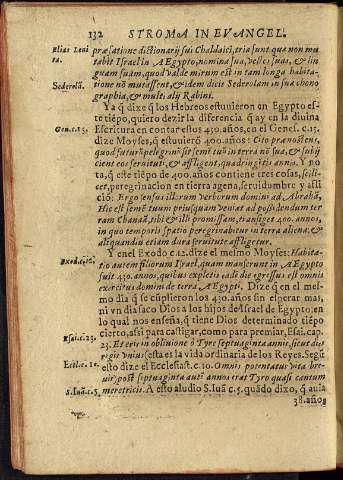 132 STROMA IN EVANGEL.
Elias Leui
ta.
præfatione dictionarij sui Chaldaici, tria sunt quæ non mu
tabit Israel in AEgypto, nomina sua, vestes suas, & lin
guam suam, quod valde mirum est in tam longa habita
Sederolã.
tione nõ mutassent, & idem dicit Sederolam in sua chono
graphia, & multi alij Rabini.
Ya q̃ dixe q̃ los Hebreos estuuieron en Egypto es-
te tiẽpo, quiero dezir la diferencia q̃ ay en la diuina
Gen.c.15.
Escritura en contar estos 430. años, eo el Genes. c. 15.
dize Moyses, q̃ estuuierõ 400. años: Cito prænoscens,
quod futurũ peregrinũ sit semẽ tuũ in terra nõ sua, & subij
cient eos seruituti, & affligent, quadringẽtis annis. Y no
ta, q̃ este tiẽpo de 400. años contiene tres cosas, scili-
cet, peregrinacion en tierra agena, seruidumbre y afli
ciõ: Ergo sensus illorum verborum domini ad Abrahã,
Hic est semẽ tuum peiusquam veniat ad possidendum ter
ram Chanaã, tibi & illi promissam, transiget 400. annos,
in quo temporis spatio peregrinabitur in terra aliena, &
aliquandiu etiam dura seruitute affligetur.
Exod.c.12.
Y en el Exodo c. 12. dize el mesmo Moyses: Habita-
tio autem filiorum Israel, quam manserunt in AEgypto
fuit 430. annos, quibus expletis eadẽ die egressus est omnis
exercitus domini de terra AEgypti. Dize q̃ en el mes-
mo dia q̃ se cũplieron los 430. años sin esperar mas,
ni vn dia saco Dios a los hijos de Israel de Egypto: en
lo qual nos enseña, q̃ tiene Dios determinado tiẽpo
cierto, assi para castigar, como para premiar, Esai. cap.
Esai.c.23.
23. Et eris in obliuione ô Tyre septuaginta annis, sicut dies
regis vnius: esta es la vida ordinaria de los Reyes. Segũ
Eccl.c.10.
esto dize el Ecclesiast. c. 10. Omnis potentatus vita bre
uis, post septuaginta autẽ annos erat Tyro quasi cantum
S.Iuã.c.5.
meretricis. A esto aludio S. Iuã c. 5. quãdo dixo, q̃ auia
38. años